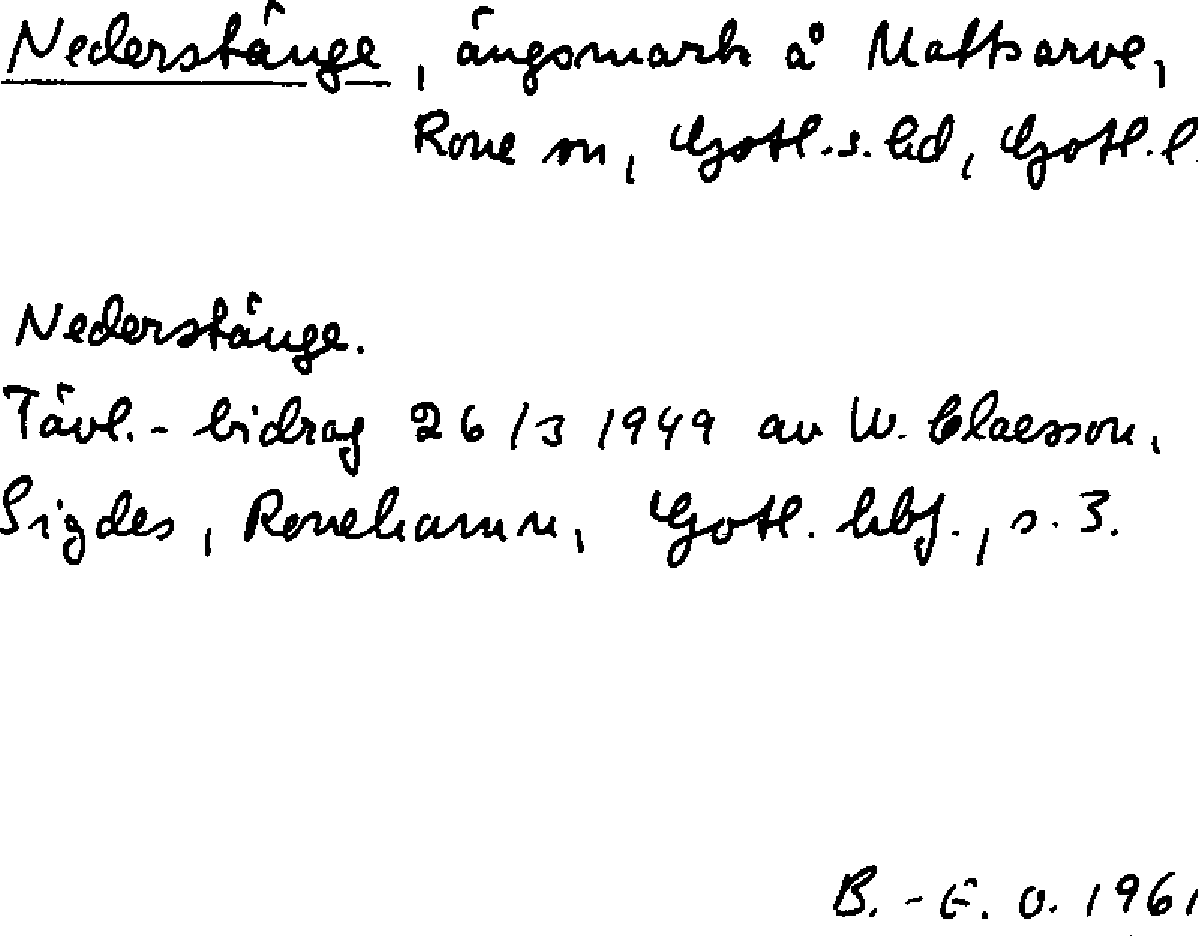 Nederstänge, ängsmark å Mattsarve,
Rone sn, Gotl. s. hd, Gotl. l.
Nederstänge.
Tävl.-bidrag 26/3 1949 av W. Claesson,
Sigdes, Ronehamn, Gotl. hbf., s. 3.
B.-E. O. 1961